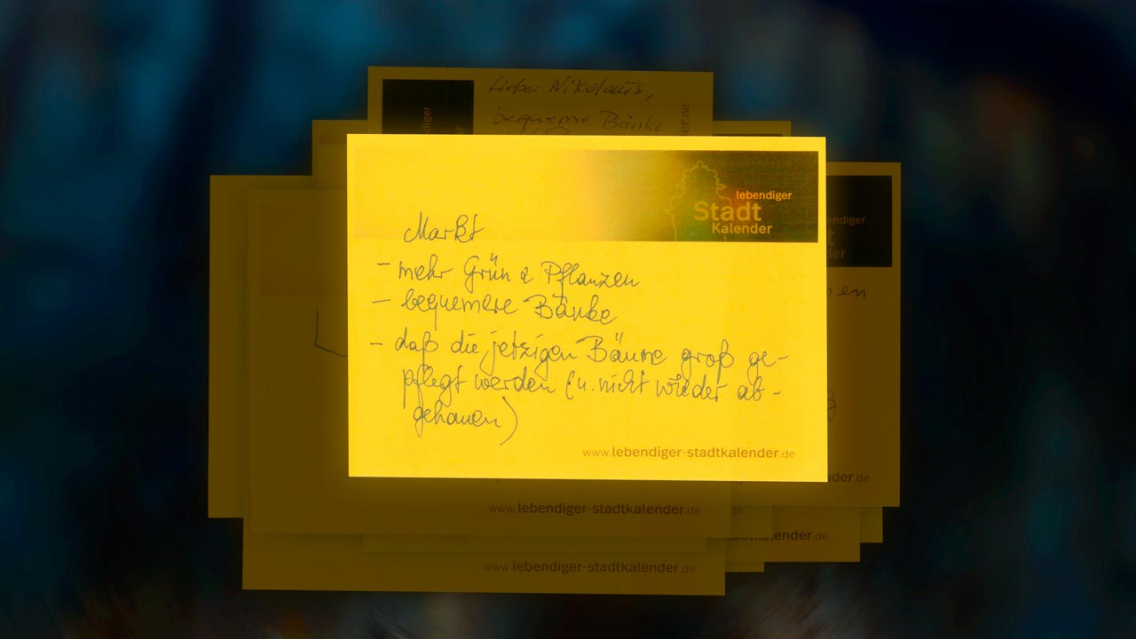 Lieber Nikolaus,
bequeme Bänke
lebendiger
Stadt
Kalender
Markt
- mehr Grün & Pflanzen
- bequemere Bänke
- daß die jetzigen Bäume groß ge-
pflegt werden (u. nicht wieder ab-
gehauen)
www.lebendiger-stadtkalender.de
www.lebendiger-stadtkalender.de
www.lebendiger-stadtkalender.de